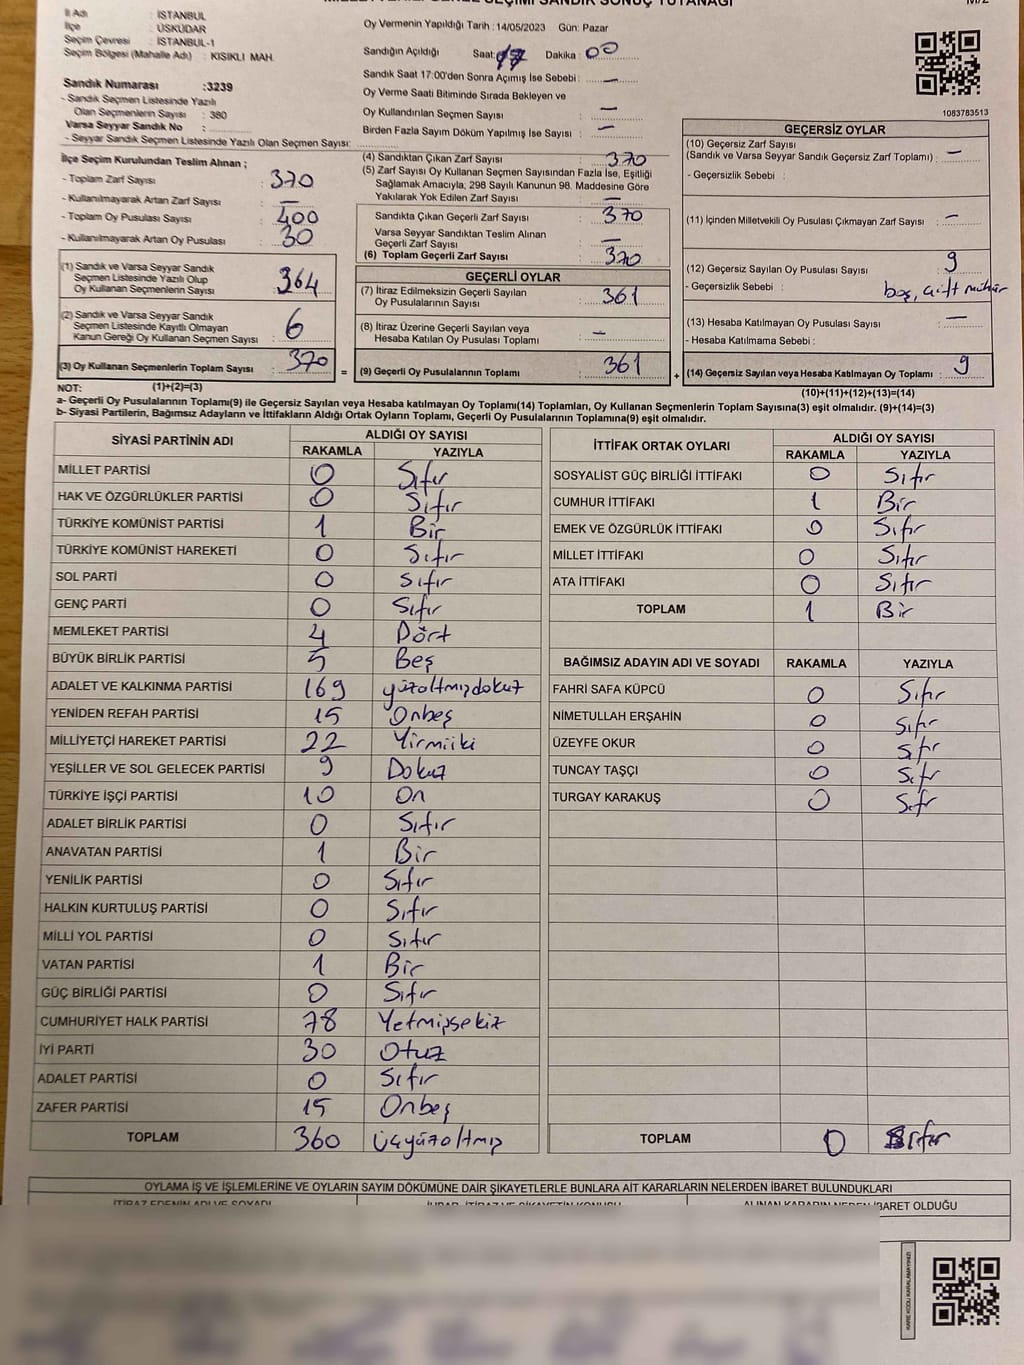 MİLLETVEKİLİ GENEL SEÇİMİ SANDIK SONUÇ TUTANAĞI
M/2
İl Adı : İSTANBUL
İlçe : ÜSKÜDAR
Seçim Çevresi : İSTANBUL-1
Seçim Bölgesi (Mahalle Adı) : KISIKLI MAH.
Oy Vermenin Yapıldığı Tarih : 14/05/2023 Gün: Pazar
Sandığın Açıldığı Saat: 17 Dakika : 00
Sandık Saat 17:00'den Sonra Açımış İse Sebebi : —
Oy Verme Saati Bitiminde Sırada Bekleyen ve
Oy Kullandırılan Seçmen Sayısı : —
Birden Fazla Sayım Döküm Yapılmış İse Sayısı : —
1083783513
Sandık Numarası :3239
- Sandık Seçmen Listesinde Yazılı
Olan Seçmenlerin Sayısı : 380
Varsa Seyyar Sandık No :
- Seyyar Sandık Seçmen Listesinde Yazılı Olan Seçmen Sayısı:
İlçe Seçim Kurulundan Teslim Alınan ;
- Toplam Zarf Sayısı : 370
- Kullanılmayarak Artan Zarf Sayısı : —
- Toplam Oy Pusulası Sayısı : 400
- Kullanılmayarak Artan Oy Pusulası : 30
(1) Sandık ve Varsa Seyyar Sandık
Seçmen Listesinde Yazılı Olup
Oy Kullanan Seçmenlerin Sayısı : 364
(2) Sandık ve Varsa Seyyar Sandık
Seçmen Listesinde Kayıtlı Olmayan
Kanun Gereği Oy Kullanan Seçmen Sayısı : 6
(3) Oy Kullanan Seçmenlerin Toplam Sayısı : 370 =
(4) Sandıktan Çıkan Zarf Sayısı : 370
(5) Zarf Sayısı Oy Kullanan Seçmen Sayısından Fazla İse, Eşitliği
Sağlamak Amacıyla, 298 Sayılı Kanunun 98. Maddesine Göre
Yakılarak Yok Edilen Zarf Sayısı : —
Sandıkta Çıkan Geçerli Zarf Sayısı : 370
Varsa Seyyar Sandıktan Teslim Alınan
Geçerli Zarf Sayısı : —
(6) Toplam Geçerli Zarf Sayısı : 370
GEÇERLİ OYLAR
(7) İtiraz Edilmeksizin Geçerli Sayılan
Oy Pusulalarının Sayısı : 361
(8) İtiraz Üzerine Geçerli Sayılan veya
Hesaba Katılan Oy Pusulası Toplamı : —
(9) Geçerli Oy Pusulalarının Toplamı : 361 +
GEÇERSİZ OYLAR
(10) Geçersiz Zarf Sayısı
(Sandık ve Varsa Seyyar Sandık Geçersiz Zarf Toplamı) : —
- Geçersizlik Sebebi :
(11) İçinden Milletvekili Oy Pusulası Çıkmayan Zarf Sayısı : —
(12) Geçersiz Sayılan Oy Pusulası Sayısı : 9
- Geçersizlik Sebebi : boş, çift mühür
(13) Hesaba Katılmayan Oy Pusulası Sayısı : —
- Hesaba Katılmama Sebebi :
(14) Geçersiz Sayılan veya Hesaba Katılmayan Oy Toplamı : 9
NOT: (1)+(2)=(3)
(10)+(11)+(12)+(13)=(14)
a- Geçerli Oy Pusulalarının Toplamı(9) ile Geçersiz Sayılan veya Hesaba katılmayan Oy Toplamı(14) Toplamları, Oy Kullanan Seçmenlerin Toplam Sayısına(3) eşit olmalıdır. (9)+(14)=(3)
b- Siyasi Partilerin, Bağımsız Adayların ve İttifakların Aldığı Ortak Oyların Toplamı, Geçerli Oy Pusulalarının Toplamına(9) eşit olmalıdır.
SİYASİ PARTİNİN ADI ALDIĞI OY SAYISI
RAKAMLA YAZIYLA
MİLLET PARTİSİ 0 Sıfır
HAK VE ÖZGÜRLÜKLER PARTİSİ 0 Sıfır
TÜRKİYE KOMÜNİST PARTİSİ 1 Bir
TÜRKİYE KOMÜNİST HAREKETİ 0 Sıfır
SOL PARTİ 0 Sıfır
GENÇ PARTİ 0 Sıfır
MEMLEKET PARTİSİ 4 Dört
BÜYÜK BİRLİK PARTİSİ 5 Beş
ADALET VE KALKINMA PARTİSİ 169 yüzaltmışdokuz
YENİDEN REFAH PARTİSİ 15 Onbeş
MİLLİYETÇİ HAREKET PARTİSİ 22 Yirmiiki
YEŞİLLER VE SOL GELECEK PARTİSİ 9 Dokuz
TÜRKİYE İŞÇİ PARTİSİ 10 On
ADALET BİRLİK PARTİSİ 0 Sıfır
ANAVATAN PARTİSİ 1 Bir
YENİLİK PARTİSİ 0 Sıfır
HALKIN KURTULUŞ PARTİSİ 0 Sıfır
MİLLİ YOL PARTİSİ 0 Sıfır
VATAN PARTİSİ 1 Bir
GÜÇ BİRLİĞİ PARTİSİ 0 Sıfır
CUMHURİYET HALK PARTİSİ 78 Yetmişsekiz
İYİ PARTİ 30 Otuz
ADALET PARTİSİ 0 Sıfır
ZAFER PARTİSİ 15 Onbeş
TOPLAM 360 üçyüzaltmış
İTTİFAK ORTAK OYLARI ALDIĞI OY SAYISI
RAKAMLA YAZIYLA
SOSYALİST GÜÇ BİRLİĞİ İTTİFAKI 0 Sıfır
CUMHUR İTTİFAKI 1 Bir
EMEK VE ÖZGÜRLÜK İTTİFAKI 0 Sıfır
MİLLET İTTİFAKI 0 Sıfır
ATA İTTİFAKI 0 Sıfır
TOPLAM 1 Bir
BAĞIMSIZ ADAYIN ADI VE SOYADI RAKAMLA YAZIYLA
FAHRİ SAFA KÜPCÜ 0 Sıfır
NİMETULLAH ERŞAHİN 0 Sıfır
ÜZEYFE OKUR 0 Sıfır
TUNCAY TAŞÇI 0 Sıfır
TURGAY KARAKUŞ 0 Sıfır
TOPLAM 0 Sıfır
OYLAMA İŞ VE İŞLEMLERİNE VE OYLARIN SAYIM DÖKÜMÜNE DAİR ŞİKAYETLERLE BUNLARA AİT KARARLARIN NELERDEN İBARET BULUNDUKLARI
İTİRAZ EDENİN ADI VE SOYADI
ALINAN KARARIN NEDEN İBARET OLDUĞU
KARE KODU KARALAMAYINIZ!